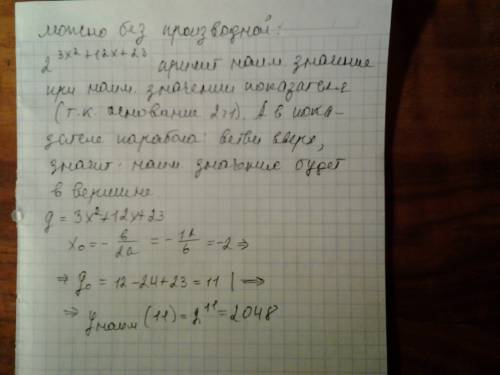 можно без производной:
2^{3x²+12x+23} примет наим значение
при наим. значении показателя
(т.к. основание 2>1). А в пока-
зателе парабола: ветви вверх,
значит наим значение будет
в вершине
y = 3x²+12x+23
x₀ = -b/2a = -12/6 = -2 ⇒
⇒ y₀ = 12-24+23 = 11 | ⇒
⇒ y наим (11) = 2^{11} = 2048